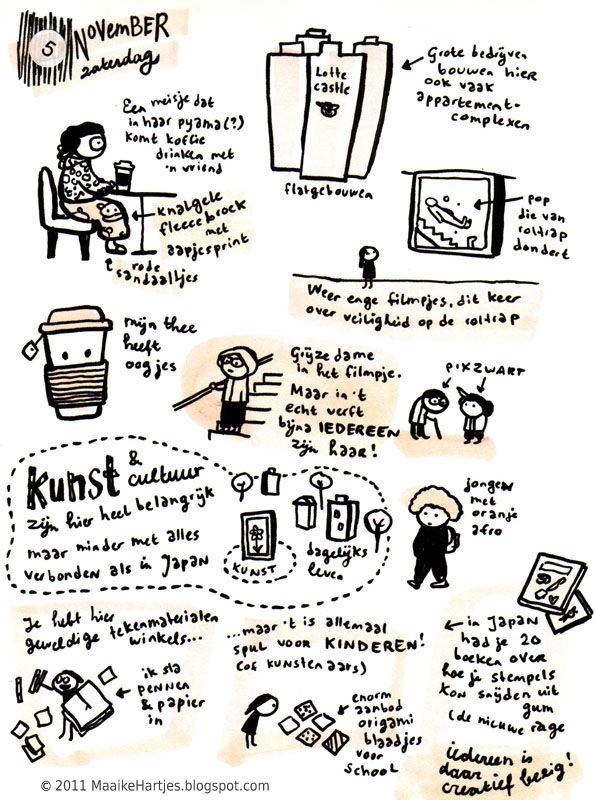 5
NOVEMBER
zaterdag
Een meisje dat
in haar pyama(?)
komt koffie
drinken met
'n vriend
knalgele
fleecebroek
met
aapjesprint
rode
sandaaltjes
Lotte
castle
flatgebouwen
Grote bedrijven
bouwen hier
ook vaak
appartement-
complexen
pop
die van
roltrap
dondert
Weer enge filmpjes, dit keer
over veiligheid op de roltrap
mijn thee
heeft
oogjes
Grijze dame
in het filmpje.
Maar in 't
echt verft
bijna IEDEREEN
zijn haar!
PIKZWART
Kunst &
cultuur
zijn hier heel belangrijk
maar minder met alles
verbonden als in Japan
KUNST
dagelijks
leven
jongen
met
oranje
afro
Je hebt hier
geweldige tekenmaterialen
winkels...
ik sla
PENNEN
& papier
in
...maar 't is allemaal
spul voor KINDEREN!
(of kunstenaars)
enorm
aanbod
origami
blaadjes
voor
SCHOOL
in Japan
had je 20
boeken over
hoe je stempels
kon snijden uit
gum
(de nieuwe rage
iedereen is
daar
creatief bezig!
© 2011 MaaikeHartjes.blogspot.com